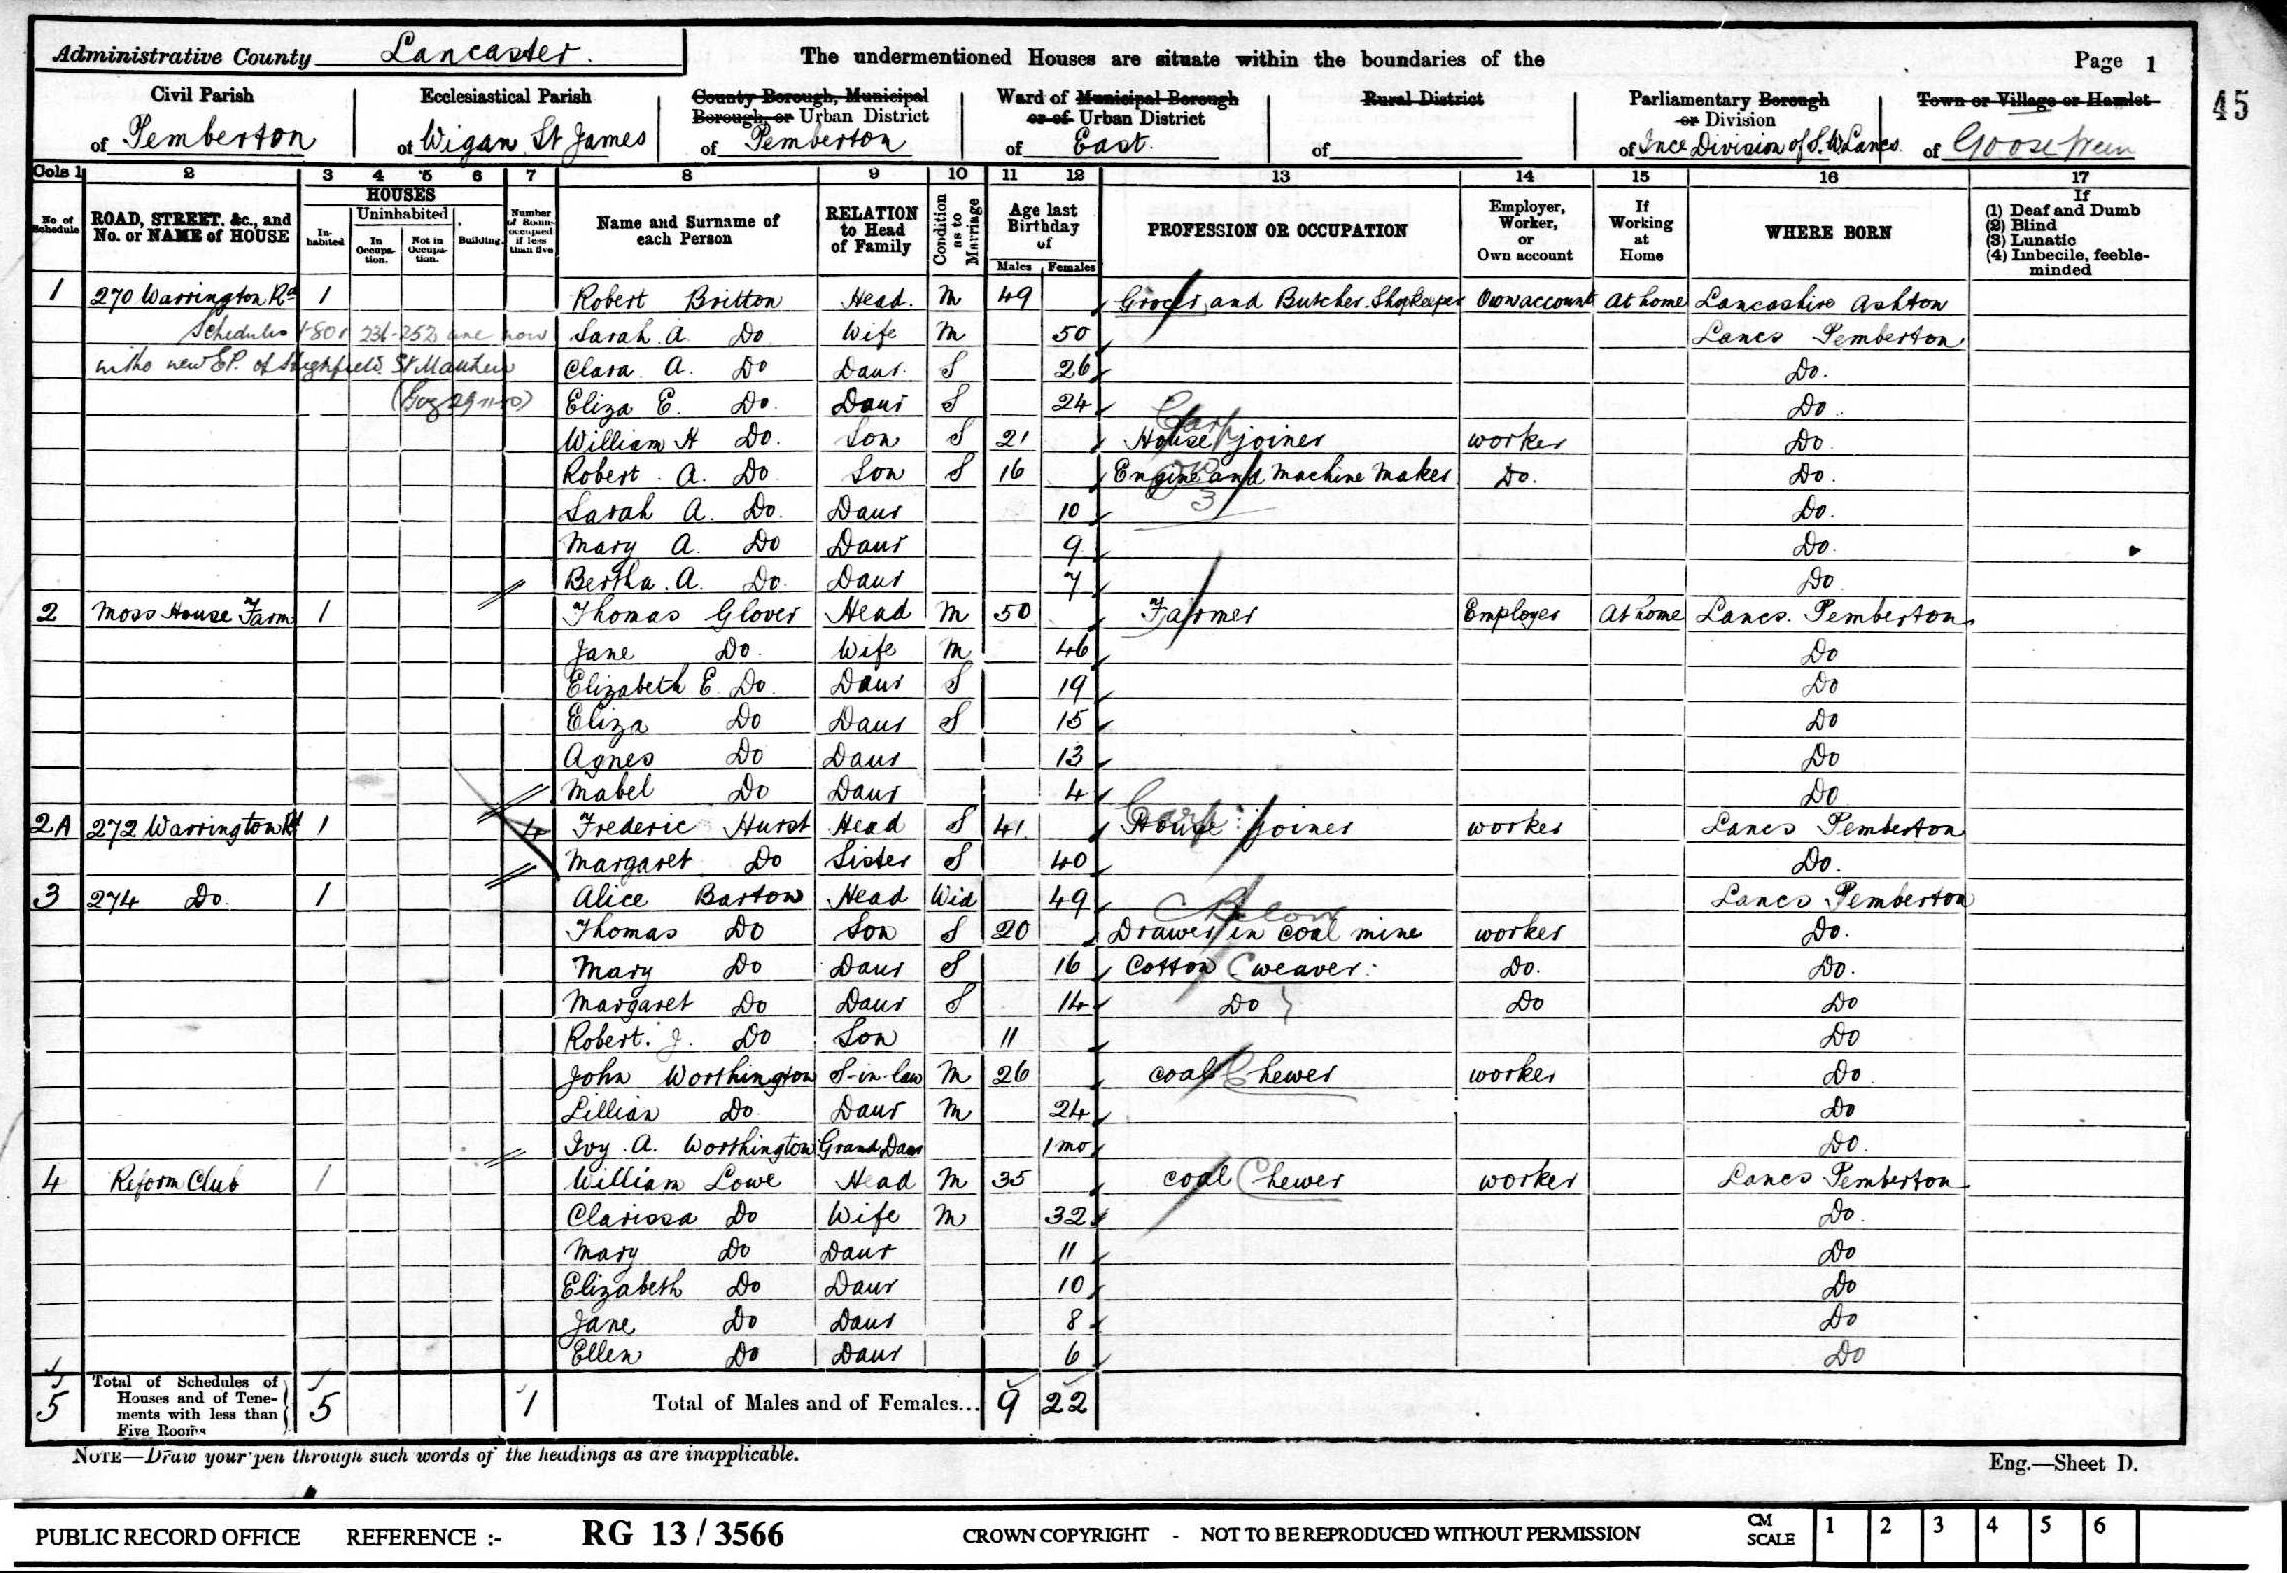 Administrative County Lancaster. The undermentioned Houses are situate within the boundaries of the Page 1
45
Civil Parish of Pemberton
Ecclesiastical Parish of Wigan St James
County Borough, Municipal Borough, or Urban District of Pemberton
Ward of Municipal Borough or of Urban District of East.
Rural District of
Parliamentary Borough or Division of Ince Division of S.W. Lancs.
Town or Village or Hamlet of Goose Green
Cols 1 2 3 4 5 6 7 8 9 10 11 12 13 14 15 16 17
No. of Schedule
ROAD, STREET, &c., and No. or NAME of HOUSE
HOUSES
Inhabited
Uninhabited
In Occupation.
Not in Occupation.
Building.
Number of Rooms occupied if less than five
Name and Surname of each Person
RELATION to Head of Family
Condition as to Marriage
Age last Birthday of
Males Females
PROFESSION OR OCCUPATION
Employer, Worker, or Own account
If Working at Home
WHERE BORN
If
(1) Deaf and Dumb
(2) Blind
(3) Lunatic
(4) Imbecile, feeble-minded
1 270 Warrington Rd 1 Robert Britton Head. M 49 Grocer and Butcher Shopkeeper Own account At home Lancashire Ashton
Schedules 1-80 & 236-252 are now Sarah A. Do Wife M 50 Lancs Pemberton
in the new E.P. of Highfield St Matthew Clara A. Do Daur. S 26 Do.
Eliza E. Do. Daur S 24 Do.
William H Do. Son S 21 House joiner Carp worker Do.
Robert A. Do Son S 16 Engine and Machine Maker 3 Do. Do.
Sarah A. Do. Daur 10 Do.
Mary A. Do Daur 9 Do.
Bertha A. Do. Daur 7 Do
2 Moss House Farm 1 Thomas Glover Head M 50 Farmer Employer At home Lancs. Pemberton
Jane Do. Wife M 46 Do
Elizabeth E. Do. Daur S 19 Do
Eliza Do Daur S 15 Do
Agnes Do Daur 13 Do
Mabel Do Daur 4 Do
2A 272 Warrington Rd 1 4 Frederic Hurst Head S 41 House joiner Carp: worker Lancs Pemberton
Margaret Do Sister S 40 Do.
3 274 Do. 1 Alice Barton Head Wid 49 Lancs Pemberton
Thomas Do Son S 20 Drawer in coal mine Below worker Do.
Mary Do Daur S 16 Cotton weaver. Do. Do.
Margaret Do Daur S 14 Do Do Do
Robert. J. Do Son 11 Do
John Worthington S-in-law M 26 coal hewer worker Do
Lillian Do Daur M 24 Do
Ivy. A. Worthington Grand Daur 1 mo Do.
4 Reform Club 1 William Lowe Head M 35 coal hewer worker Lancs Pemberton
Clarissa Do Wife M 32 Do.
Mary Do Daur 11 Do
Elizabeth Do Daur 10 Do
Jane Do Daur 8 Do
Ellen Do Daur 6 Do
5 Total of Schedules of Houses and of Tenements with less than Five Rooms 5 1 Total of Males and of Females... 9 22
NOTE—Draw your pen through such words of the headings as are inapplicable. Eng.—Sheet D.
PUBLIC RECORD OFFICE REFERENCE :- RG 13/3566 CROWN COPYRIGHT - NOT TO BE REPRODUCED WITHOUT PERMISSION CM SCALE 1 2 3 4 5 6